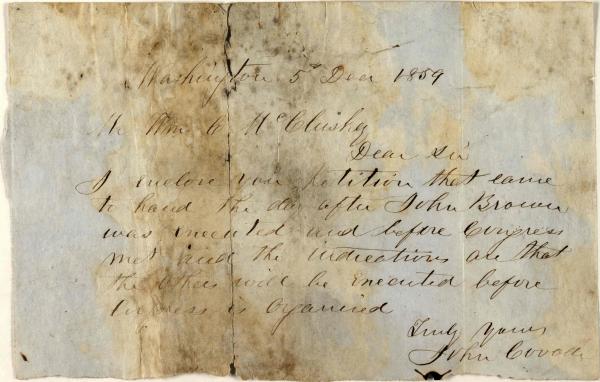 Washington 5th Decr 1859
Mr Wm A. McCluskey
Dear Sir
I enclose your petition that came
to hand the day after John Brown
was executed and before Congress
met and the indications are that
the others will be executed before
Congress is Organised
Truly yours
John Covode